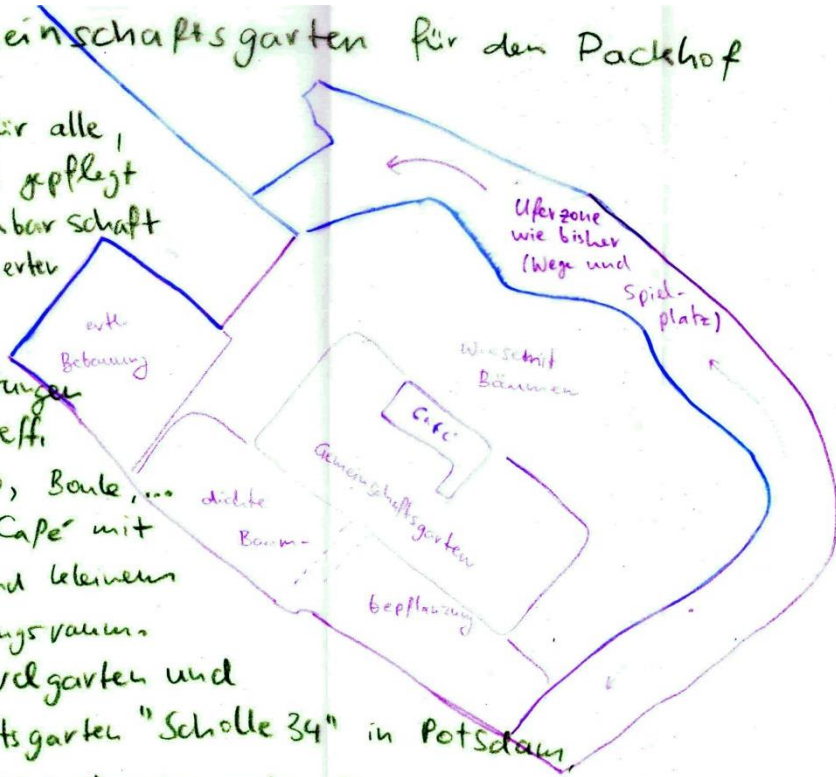 einschaftsgarten für den Packhof
ür alle,
gepflegt
bar schaft
erter
rungen
eff.
, Boule,...
Café mit
nd kleinem
ngsraum.
rdgarten und
tsgarten "Scholle 34" in Potsdam,
Uferzone
wie bisher
(Wege und
Spiel-
platz)
evtl.
Bebauung
Wiese mit
Bäumen
Café
Gemeinschaftsgarten
dichte
Baum-
bepflanzung